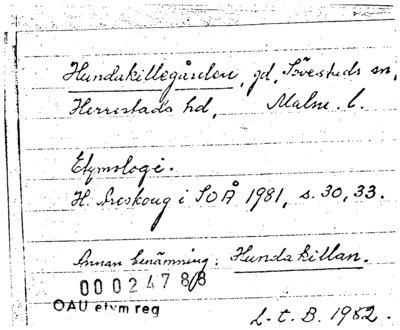 Hundakillegården, gd, Sövestads sn,
Herrestads hd, Malm. l.
Etymologi.
H. Areskoug i SOÅ 1981, s. 30, 33.
Annan benämning: Hundakillan.
00024788
OAU etym reg
L. t. B. 1982.